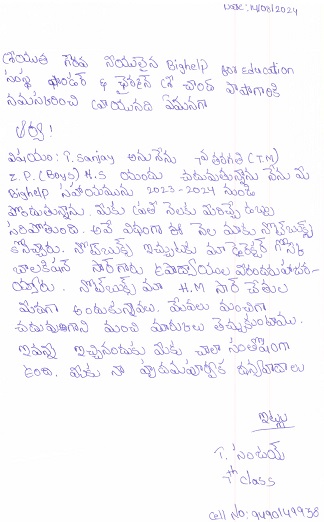 Date: 14/08/2024
గౌరవ నీయులైన Bighelp for education
సంస్థ ఫౌండర్ & ఛైర్మన్ శ్రీ చాంద్ పాషాగారికి
నమస్కరించి వ్రాయునది ఏమనగా
ఆర్యా!
విషయం: T. Sanjay అను నేను 7వ తరగతి (T.M)
Z.P. (Boys) H.S యందు చదువుతున్నాను నేను మీ
Bighelp సహాయమును 2023-2024 నుండి
పొందుతున్నాను. మీకు ప్రతి నెలకు మీరిచ్చే డబ్బు
సరిపోతుంది. అదే విధంగా ఈ నెల మాకు నోట్‌బుక్స్
కొనిచ్చారు. నోట్‌బుక్స్ ఇచ్చుటకు మా డైరెక్టర్
బాలకిషన్ సార్ గారు ఉపాధ్యాయులు
నోట్‌బుక్స్ మా H.M సార్ చేతుల
మీదగా అందుకున్నాము. మేము మంచిగా
చదువుకొని మంచి మార్కులు తెచ్చుకుంటాము.
ఇవన్నీ ఇచ్చినందుకు మీకు చాలా సంతోషంగా
ఉంది. మీకు నా హృదయపూర్వక ధన్యవాదాలు
ఇట్లు
T. సంజయ్
7th class
Cell No: 9490149938